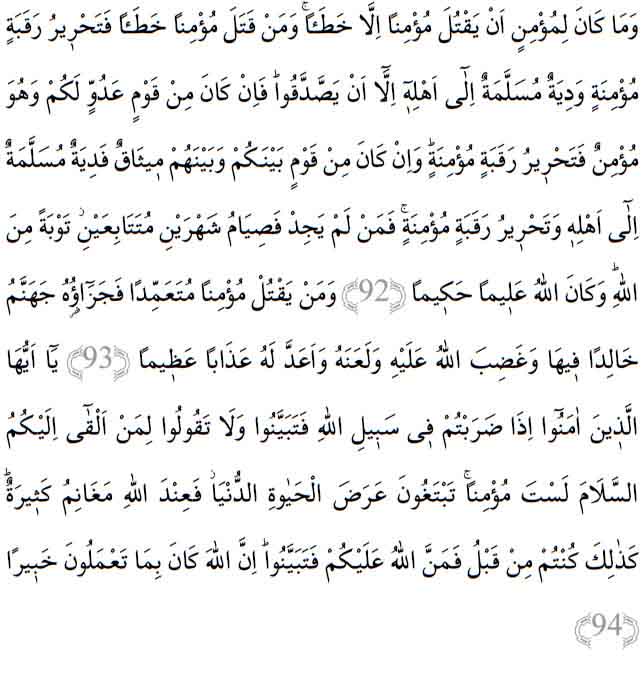 وَمَا كَانَ لِمُؤْمِنٍ اَنْ يَقْتُلَ مُؤْمِنًا اِلَّا خَطَـًٔاۚ وَمَنْ قَتَلَ مُؤْمِنًا خَطَـًٔا فَتَحْر۪يرُ رَقَبَةٍ
مُؤْمِنَةٍ وَدِيَةٌ مُسَلَّمَةٌ اِلٰٓى اَهْلِه۪ٓ اِلَّٓا اَنْ يَصَّدَّقُواۜ فَاِنْ كَانَ مِنْ قَوْمٍ عَدُوٍّ لَكُمْ وَهُوَ
مُؤْمِنٌ فَتَحْر۪يرُ رَقَبَةٍ مُؤْمِنَةٍۜ وَاِنْ كَانَ مِنْ قَوْمٍ بَيْنَكُمْ وَبَيْنَهُمْ م۪يثَاقٌ فَدِيَةٌ مُسَلَّمَةٌ
اِلٰٓى اَهْلِه۪ وَتَحْر۪يرُ رَقَبَةٍ مُؤْمِنَةٍۚ فَمَنْ لَمْ يَجِدْ فَصِيَامُ شَهْرَيْنِ مُتَتَابِعَيْنِۘ تَوْبَةً مِنَ
اللّٰهِۜ وَكَانَ اللّٰهُ عَل۪يمًا حَك۪يمًا ﴿92﴾ وَمَنْ يَقْتُلْ مُؤْمِنًا مُتَعَمِّدًا فَجَزَٓاؤُ۬هُ جَهَنَّمُ
خَالِدًا ف۪يهَا وَغَضِبَ اللّٰهُ عَلَيْهِ وَلَعَنَهُ وَاَعَدَّ لَهُ عَذَابًا عَظ۪يمًا ﴿93﴾ يَٓا اَيُّهَا
الَّذ۪ينَ اٰمَنُٓوا اِذَا ضَرَبْتُمْ ف۪ي سَب۪يلِ اللّٰهِ فَتَبَيَّنُوا وَلَا تَقُولُوا لِمَنْ اَلْقٰٓى اِلَيْكُمُ
السَّلَامَ لَسْتَ مُؤْمِنًاۚ تَبْتَغُونَ عَرَضَ الْحَيٰوةِ الدُّنْيَاۘ فَعِنْدَ اللّٰهِ مَغَانِمُ كَث۪يرَةٌۜ
كَذٰلِكَ كُنْتُمْ مِنْ قَبْلُ فَمَنَّ اللّٰهُ عَلَيْكُمْ فَتَبَيَّنُواۜ اِنَّ اللّٰهَ كَانَ بِمَا تَعْمَلُونَ خَب۪يرًا
﴿94﴾